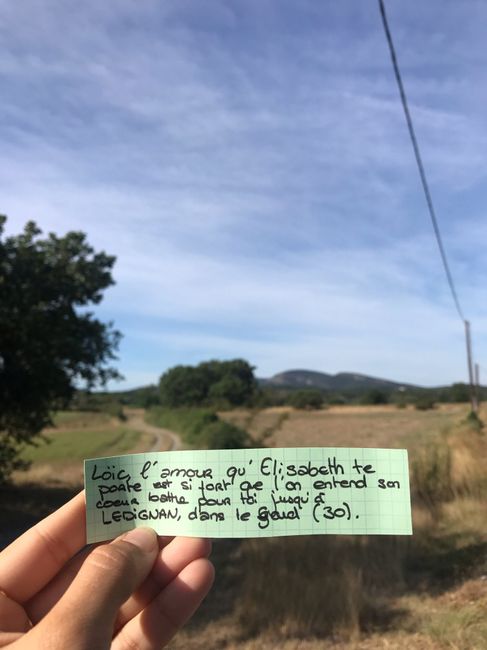 Loïc, l'amour qu'Elisabeth te
porte est si fort que l'on entend son
coeur battre pour toi jusqu'à
LEDIGNAN, dans le Gard (30).